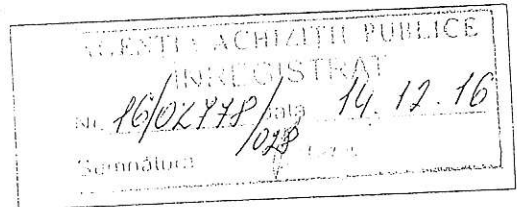 AGENȚIA ACHIZIȚII PUBLICE
INREGISTRAT
Nr. 16/02778/028 data 14.12.16
Semnătura